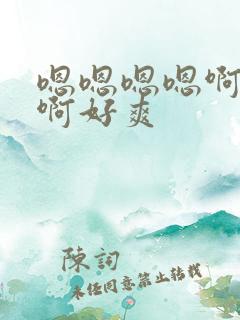 嗯嗯嗯嗯啊
啊好爽
陈詞
未经同意禁止转载